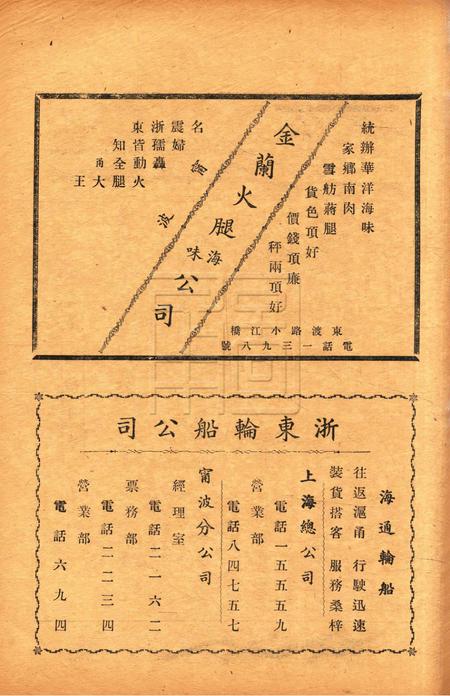 統辦華洋海味
家鄉南肉
雪舫蔣腿
貨色項好
價錢項廉
秤兩項好
東渡路小江橋
電話一三九八號
金蘭火腿海味公司
甯波
名震浙東
婦孺皆知
轟動全甬
火腿大王
浙東輪船公司
海通輪船
往返滬甬 行駛迅速
裝貨搭客 服務桑梓
上海總公司
電話一五五五九
營業部
電話八四七五七
甯波分公司
經理室
電話二一六二
票務部
電話二二三四
營業部
電話六九四